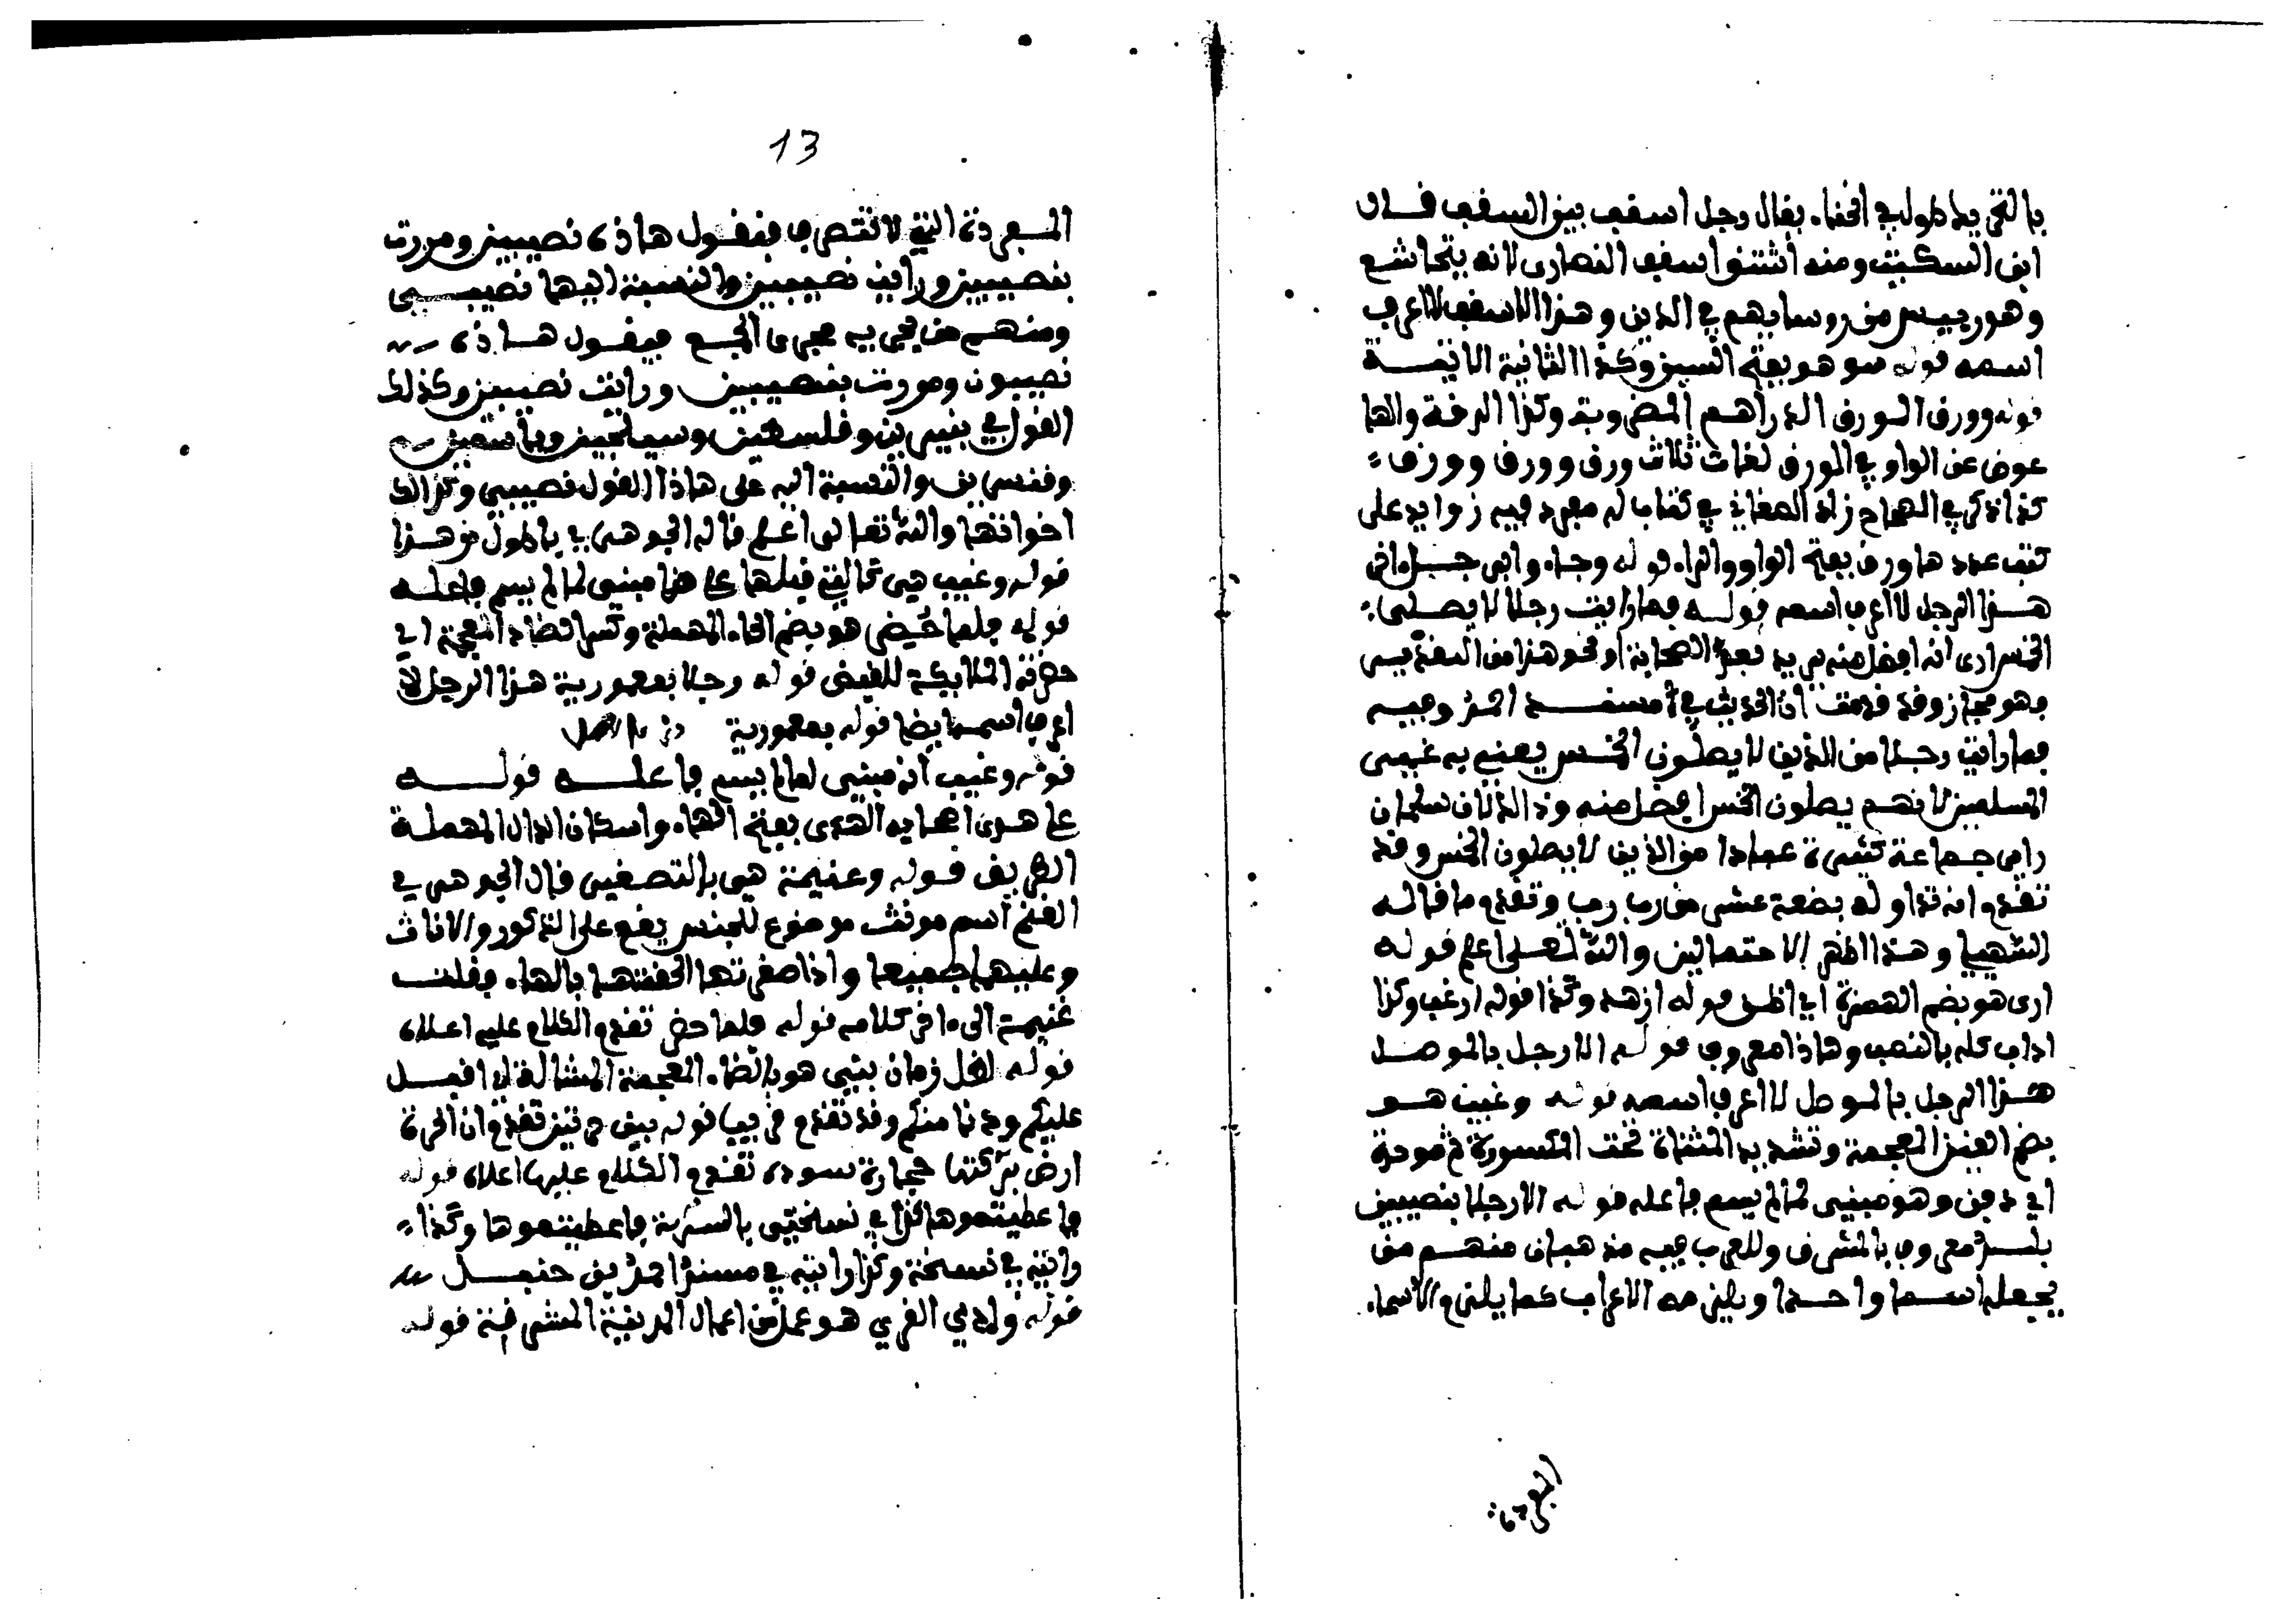 بالتحريك طول في انحناء يقال رجل اسقف بين السقف قال
ابن السكيت ومنه اشتق اسقف النصارى لانه يتخاشع
وهو رييس من روسايهم في الدين وهذا الاسقف لا اعرف
اسمه قوله سو هو بفتح السين وكذا الثانية الاتيـــة
قوله وورق الورق الدراهم المضروبة وكذا الرقة والها
عوض عن الواو في الورق لغات ثلاث ورق وورق وورق
كذا ذكره في الصحاح زاد الصغاني في كتاب له مفرد فيه زوايد على
كتب عددها ورق بفتح الواو والراء قوله وجاء وابي جـــل اخر
هـــذا الرجل لا اعرف اسمه قولــه فما رايت رجلا لا يصلـى
الخمس ارى انه افضل منه يريد بعد الصحابة او نحو هذا من التقديس
وهو مجاز وقد قدمت ان الحديث في مسنـــد احمد وفيـه
فما رايت رجلا من الذين لا يصلون الخمس يعني به غير
المسلمين لانهم يصلون الخمس افضل منه وذالك لان سلمان
راى جماعة كثيرة عبادا من الذين لا يصلون الخمس وقد
تقدم انه تداوله بضعة عشر من رب رب وتقدم ما قالـه
السهيلي وهذا اظهر الاحتمالين والله تعلى اعلم قوله
ارى هو بضم الهمزة اي اظن قوله ازهد وكذا قوله ارغب وكذا
اداب كله بالنصب وهاذا معروف قولـه الا رجل بالموصـــل
هـــذا الرجل بالموصل لا اعرف اسمه قوله وغيب هـــو
بضم الغين المعجمة وتشديد المثناة تحت المكسورة ثم موحدة
اي دفن وهو مبني لما لم يسم فاعله قوله الا رجلا بنصيبين
بلـــد معروف بالمشرق وللعرب فيه مذهبان منهـــم من
يجعله اســـما واحـــدا ويلزمه الاعراب كما يلزم الاسماء
المفردة
13
المفردة التي لا تنصرف فيقول هاذه نصيبين ومررت
بنصيبين ورايت نصيبين والنسبة اليها نصيبـــي
ومنهـــم من يجريه مجرى الجمـــع فيقول هـــاذه
نصيبون ومررت بنصيبين ورايت نصيبين وكذلك
القول في يبرين وفلسطين وسيلحين وياسمين
وقنسرين والنسبة اليه على هاذا القول نصيبيني وكذالك
اخواتها والله تعالى اعلم قاله الجوهري باطول من هـــذا
قوله وغيب هي كالتي قبلها على هما مبني لما لم يسم فاعلـه
قوله فلما حُضر هو بضم الحاء المهملة وكسر الضاد المعجمة اي
حضرته الملايكة للقبض قوله رجلا بعمورية هـــذا الرجل لا
اعرف اسمه ايضا قوله بعمورية
قوله وغيب انه مبني لما لم يسم فاعلـــه قولـــه
على هدى اصحابه الهدى بفتح الهاء واسكان الدال المهملـة
الطريق قـــوله وغنيمة هي بالتصغير قال الجوهري في
الغنم اسم مونث موضوع للجنس يقع على الذكور والاناث
وعليهما جميعا واذا صغرتها الحقتها بالهاء فقلت
غنيمة الى اخر كلامه قوله فلما حضر تقدم الكلام عليه اعلاه
قوله اظل زمان نبي هو بالظاء المعجمة المشالة اي اقبـــل
عليكم ودنا منكم وقد تقدم قريبا قوله بين حرتين تقدم ان الحرة
ارض تركبها حجارة سوده تقدم الكلام عليها اعلاه قوله
فاعطيتموها كذا في نسختي بالسيرة فاعطيتموها وكذا
رايته في نسخة وكذا رايته في مسند احمد بن حنبـــل
قوله وادي القرى هـــو عمل من اعمال المدينة المشرفة قوله